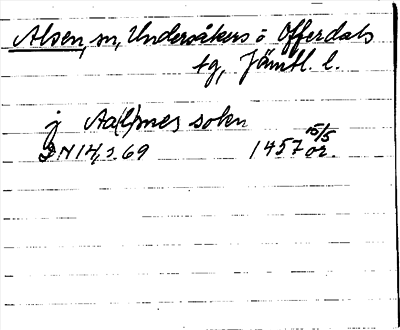 Alsen, sn, Undersåkers o Offerdals
tg, Jämtl. l.
j Aa(l)mes sokn
DN 14, s. 69 1457 15/5 or.